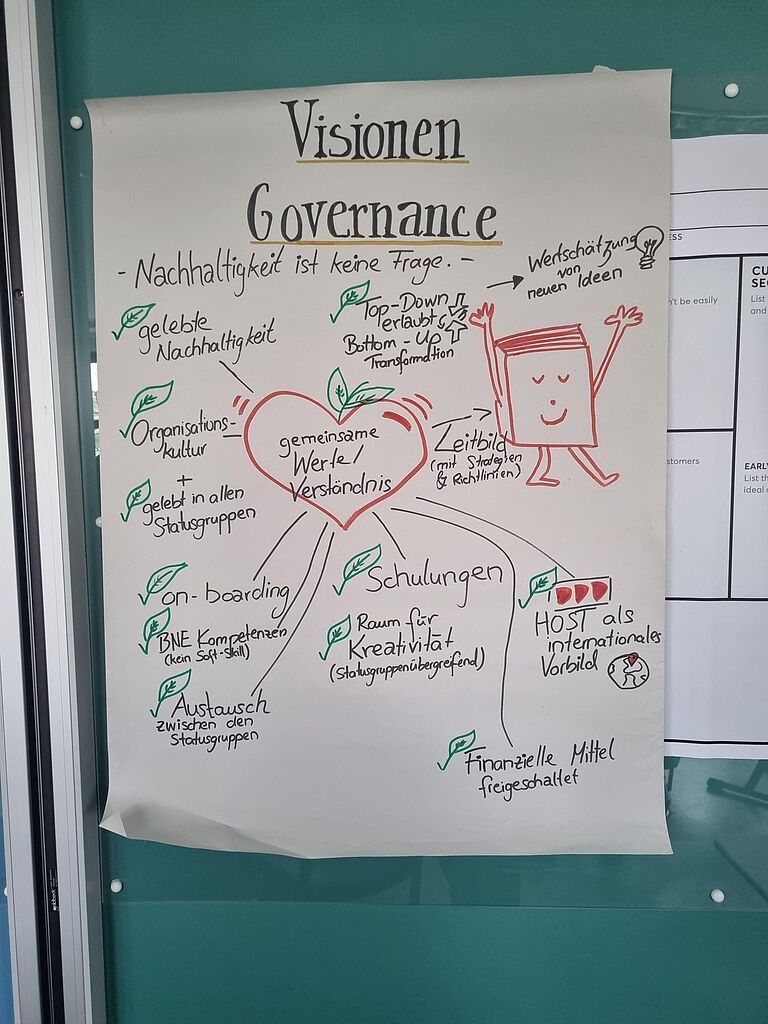 Visionen
Governance
- Nachhaltigkeit ist keine Frage. -
Wertschätzung
von
neuen Ideen
gelebte
Nachhaltigkeit
Top-Down
erlaubt
Bottom-Up
Transformation
Organisations-
kultur
+
gelebt in allen
Statusgruppen
gemeinsame
Werte/
Verständnis
Leitbild
(mit Strategien
& Richtlinien)
on-boarding
BNE Kompetenzen
(kein Soft-Skill)
Austausch
zwischen den
Statusgruppen
Schulungen
Raum für
Kreativität
(Statusgruppenübergreifend)
HOST als
internationales
Vorbild
Finanzielle Mittel
freigeschaltet
ESS
n't be easily
CU
SE
List
and
stomers
EARLY
List th
ideal c